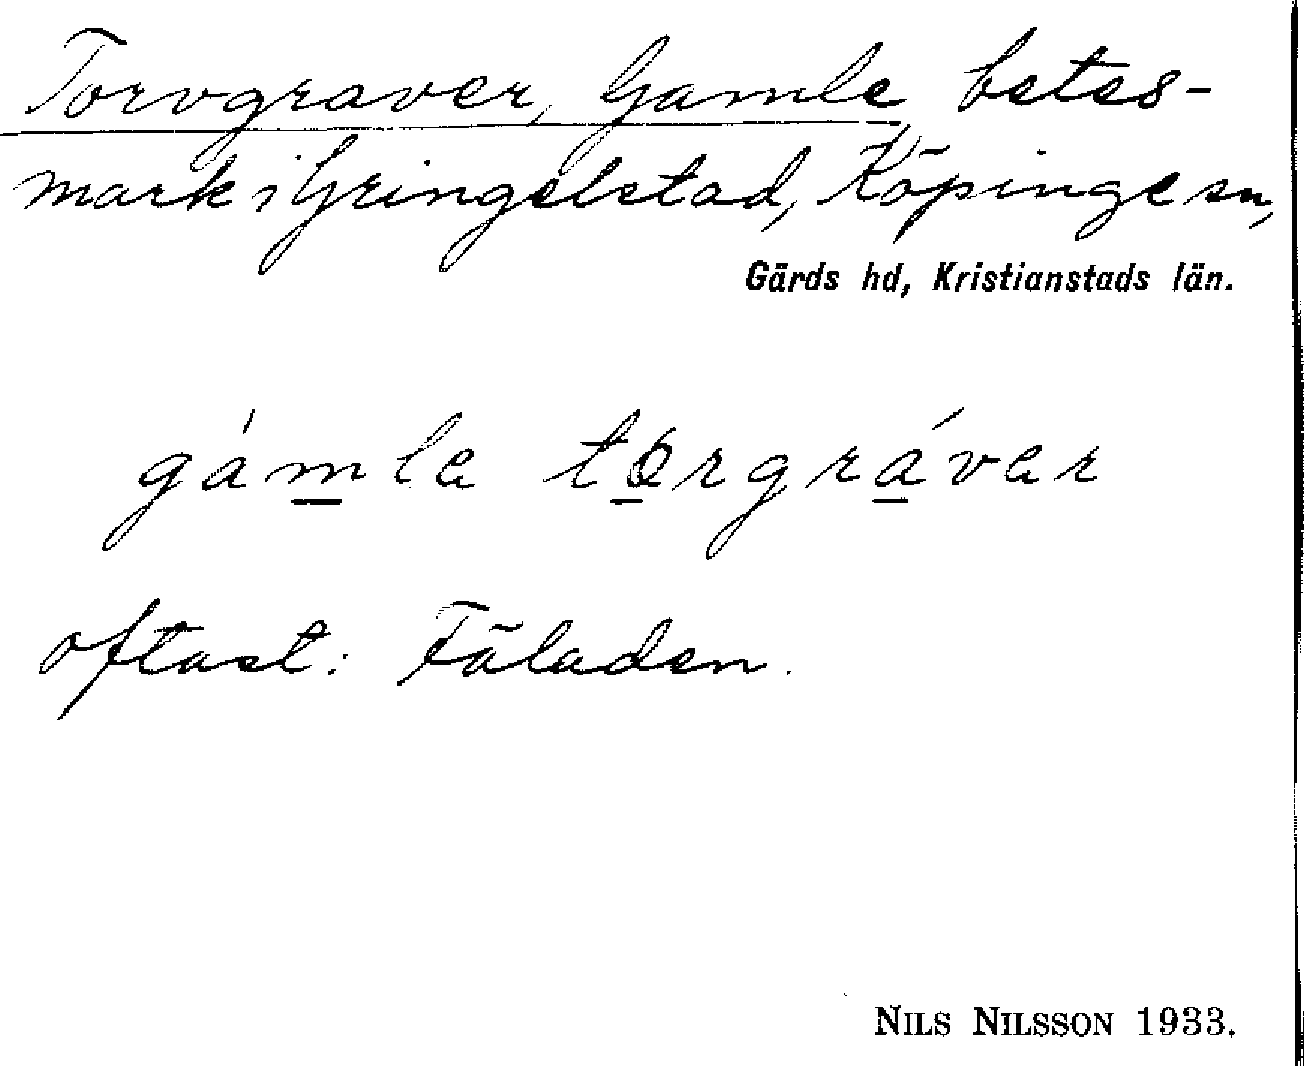 Torvgraver, Gamle betes-
mark i Gringelstad, Köpinge sn,
Gärds hd, Kristianstads län.
gámle torgráver
oftast: Fäladen.
NILS NILSSON 1933.